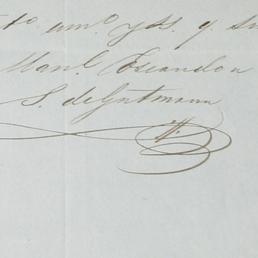 amo. y S. S. y
Manl. Escandon
S. de Gutmann